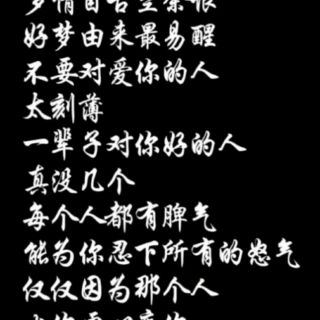 多情自古空余恨
好梦由来最易醒
不要对爱你的人
太刻薄
一辈子对你好的人
真没几个
每个人都有脾气
能为你忍下所有的怨气
仅仅因为那个人